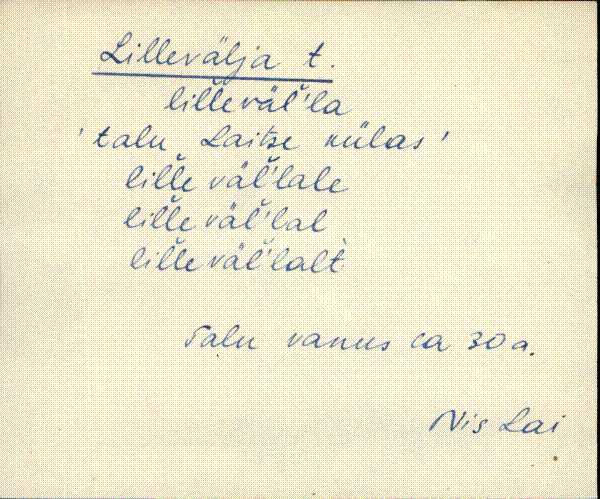 Lillevälja t.
lil̆leväl̆'la
'talu Laitse külas'
lil̆le väl̆'lale
lil̆le väl̆'lal
lil̆le väl̆'lalt
Talu vanus ca 30 a.
Nis Lai